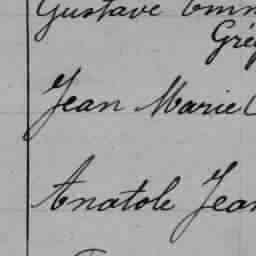 Gustave Emm
Grég
Jean Marie
Anatole Jean